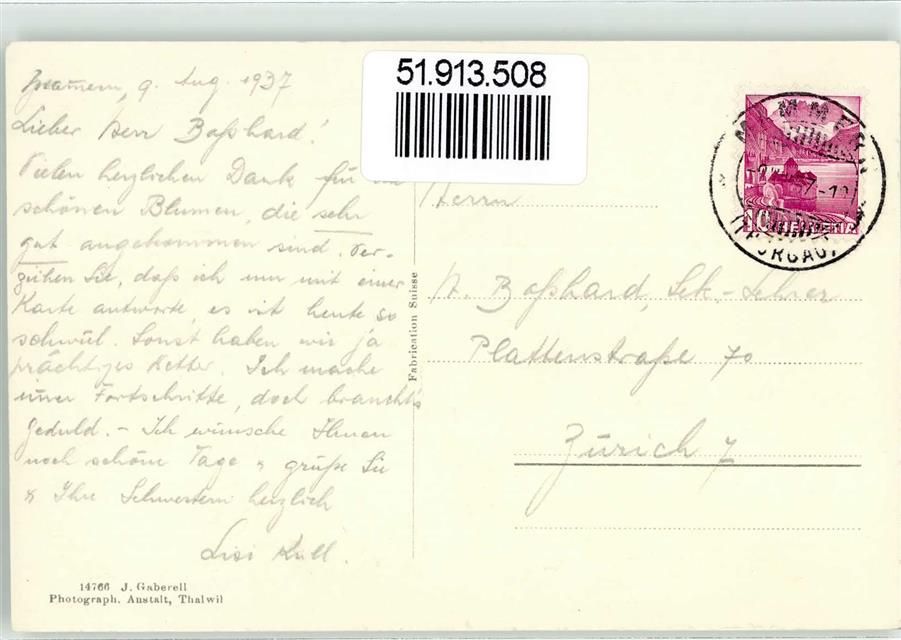 9. Aug. 1937
Lieber Herr Boßhard!
Vielen herzlichen Dank für
schönen Blumen, die sehr
gut angekommen sind. Ver-
zeihen Sie, daß ich nur mit einer
Karte antworte, es ist heute so
schwül. Sonst haben wir ja
prächtiges Wetter. Ich mache
immer Fortschritte, doch braucht's
Geduld. – Ich wünsche Ihnen
noch schöne Tage & grüße Sie
& Ihre Schwestern herzlich
Lisi Kull.
14766 J. Gaberell
Photograph. Anstalt, Thalwil
Fabrication Suisse
51.913.508
10 HELVETIA
(THURGAU)
Herrn
A. Boßhard, Sek.-Lehrer
Plattenstraße 70
Zürich 7